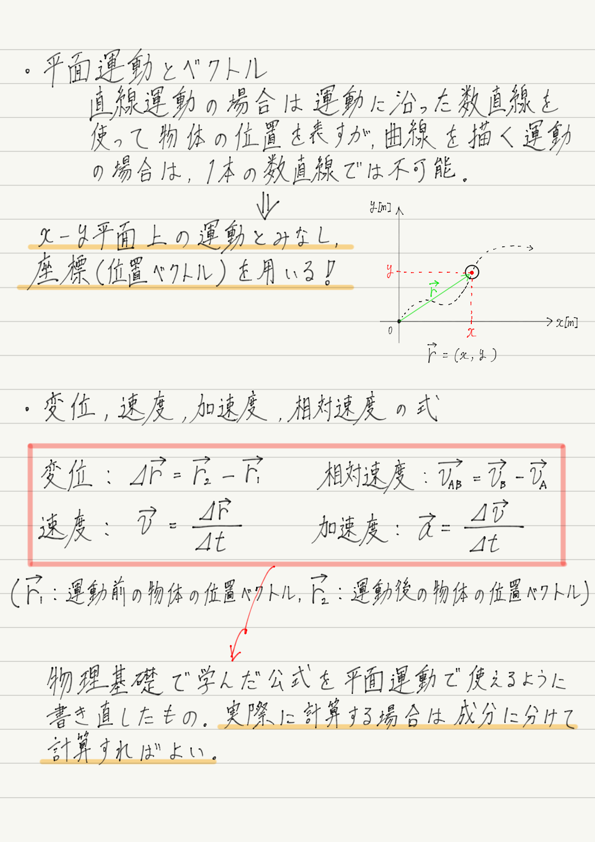 ・平面運動とベクトル
直線運動の場合は運動に沿った数直線を
使って物体の位置を表すが,曲線を描く運動
の場合は,1本の数直線では不可能.
⇓
x-y平面上の運動とみなし,
座標(位置ベクトル)を用いる!
y[m]
y
r→
0
x
x[m]
r→=(x,y)
・変位,速度,加速度,相対速度の式
変位: Δr→ = r→₂ − r→₁  相対速度: v→_AB = v→_B − v→_A
速度: v→ = Δr→/Δt  加速度: a→ = Δv→/Δt
(r→₁:運動前の物体の位置ベクトル,r→₂:運動後の物体の位置ベクトル)
物理基礎で学んだ公式を平面運動で使えるように
書き直したもの.実際に計算する場合は成分に分けて
計算すればよい.